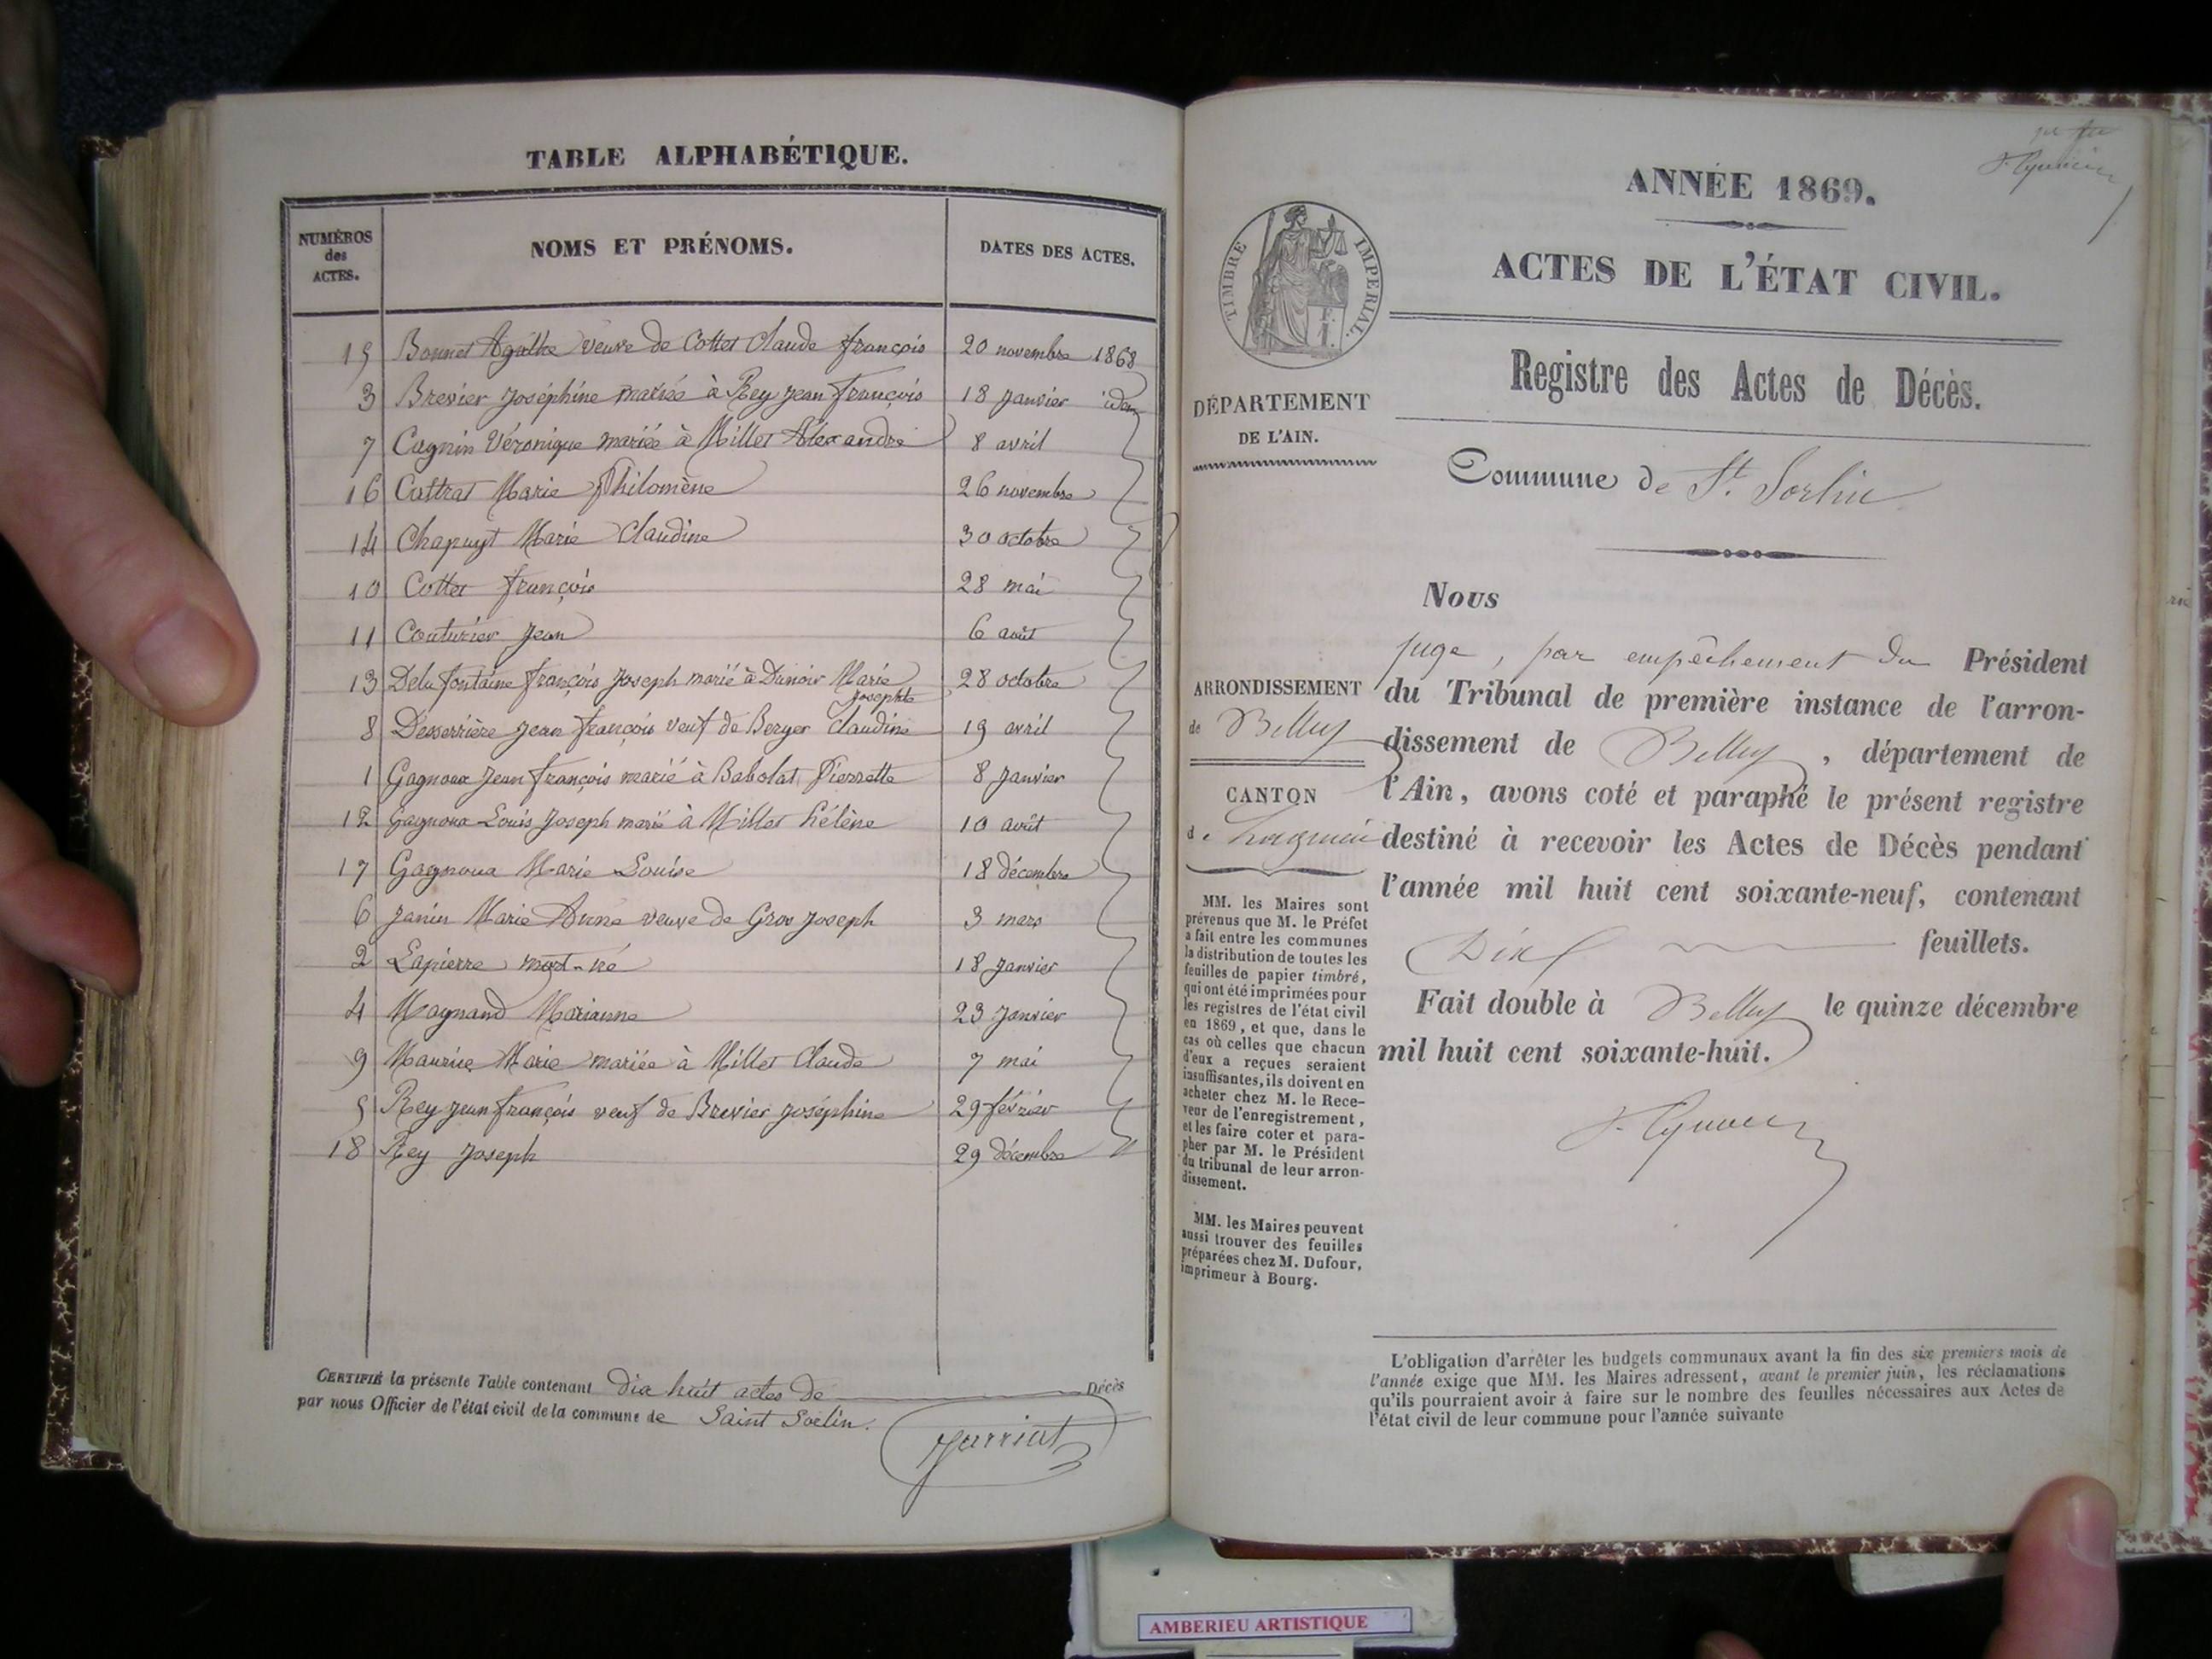 TABLE ALPHABÉTIQUE.
NUMÉROS des ACTES. NOMS ET PRÉNOMS. DATES DES ACTES.
15 Bonnet Agathe veuve de Cottet Claude françois 20 novembre 1868
3 Brevier Joséphine mariée à Rey Jean françois 18 Janvier idem
7 Cagnin Véronique mariée à Millet Alexandre 8 avril
16 Cottrat Marie Philomène 26 novembre
14 Chapuyt Marie Claudine 30 octobre
10 Cottet françois 28 mai
11 Couturier Jean 6 août
13 Delafontaine françois Joseph marié à Dunoir Marie Josephte 28 octobre
8 Desserrière Jean françois veuf de Berger Claudine 19 avril
1 Gagnoux Jean françois marié à Babolat Pierrette 8 Janvier
12 Gagnoux Louis Joseph marié à Millet hélène 10 août
17 Gagnoux Marie Louise 18 décembre
6 Janin Marie Anne veuve de Gros Joseph 3 mars
2 Lapierre mort-né 18 Janvier
4 Magnand Marianne 23 Janvier
9 Maurice Marie mariée à Millet Claude 7 mai
5 Rey Jean françois veuf de Brevier Joséphine 29 février
18 Rey Joseph 29 décembre
CERTIFIÉ la présente Table contenant dix huit actes de Décès
par nous Officier de l'état civil de la commune de Saint Sorlin.
Jarriat
ANNÉE 1869.
ACTES DE L'ÉTAT CIVIL.
TIMBRE IMPÉRIAL.
Registre des Actes de Décès.
DÉPARTEMENT
DE L'AIN.
Commune de St. Sorlin
Nous
juge, par empêchement du Président
ARRONDISSEMENT
de Belley
du Tribunal de première instance de l'arron-
dissement de Belley, département de
l'Ain, avons coté et paraphé le présent registre
destiné à recevoir les Actes de Décès pendant
l'année mil huit cent soixante-neuf, contenant
Dix feuillets.
Fait double à Belley le quinze décembre
mil huit cent soixante-huit.
CANTON
de Lagnieu
MM. les Maires sont
prévenus que M. le Préfet
a fait entre les communes
la distribution de toutes les
feuilles de papier timbré,
qui ont été imprimées pour
les registres de l'état civil
en 1869, et que, dans le
cas où celles que chacun
d'eux a reçues seraient
insuffisantes, ils doivent en
acheter chez M. le Rece-
veur de l'enregistrement,
et les faire coter et para-
pher par M. le Président
du tribunal de leur arron-
dissement.
MM. les Maires peuvent
aussi trouver des feuilles
préparées chez M. Dufour,
imprimeur à Bourg.
L'obligation d'arrêter les budgets communaux avant la fin des six premiers mois de
l'année exige que MM. les Maires adressent, avant le premier juin, les réclamations
qu'ils pourraient avoir à faire sur le nombre des feuilles nécessaires aux Actes de
l'état civil de leur commune pour l'année suivante
AMBERIEU ARTISTIQUE